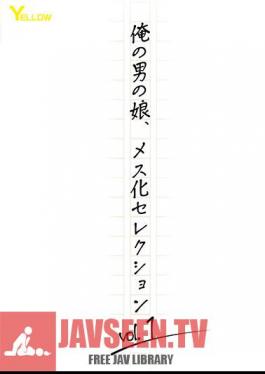 YELLOW
俺の男の娘、メス化セレクション
vol.1
JAVSEEN.TV
FREE JAV LIBRARY